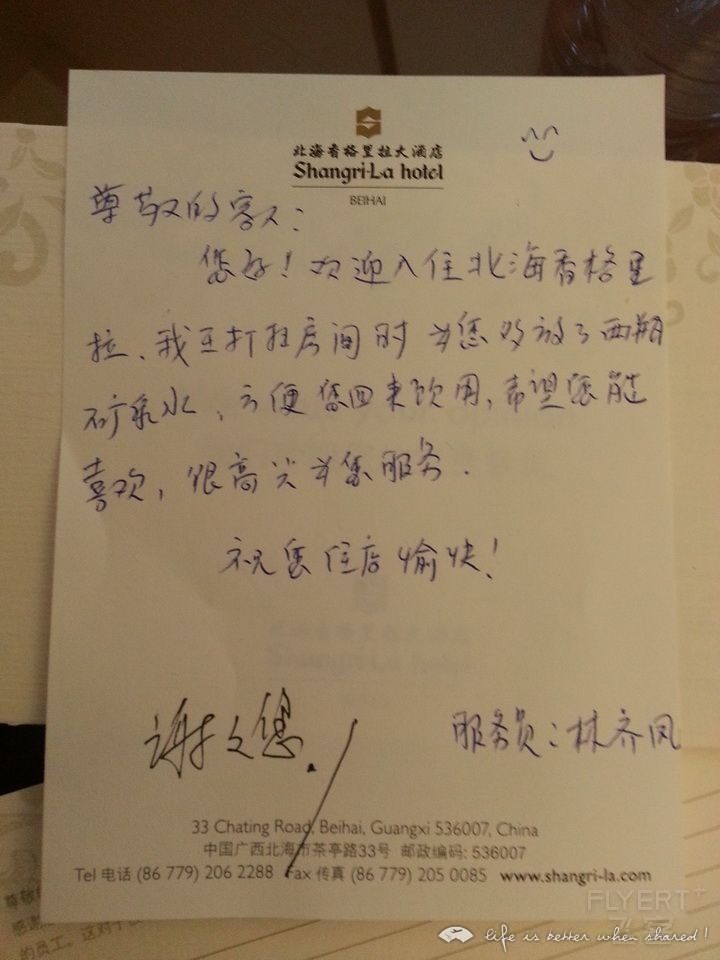 北海香格里拉大酒店
Shangri-La hotel
BEIHAI
尊敬的客人：
您好！欢迎入住北海香格里
拉、我在打扫房间时为您多放了两瓶
矿泉水、方便您回来饮用、希望您能
喜欢，很高兴为您服务．
祝您住店愉快！
谢谢您．
服务员：林齐凤
33 Chating Road, Beihai, Guangxi 536007, China
中国广西北海市茶亭路33号 邮政编码: 536007
Tel 电话 (86 779) 206 2288 Fax 传真 (86 779) 205 0085 www.shangri-la.com
FLYERT+
飞客
life is better when shared!